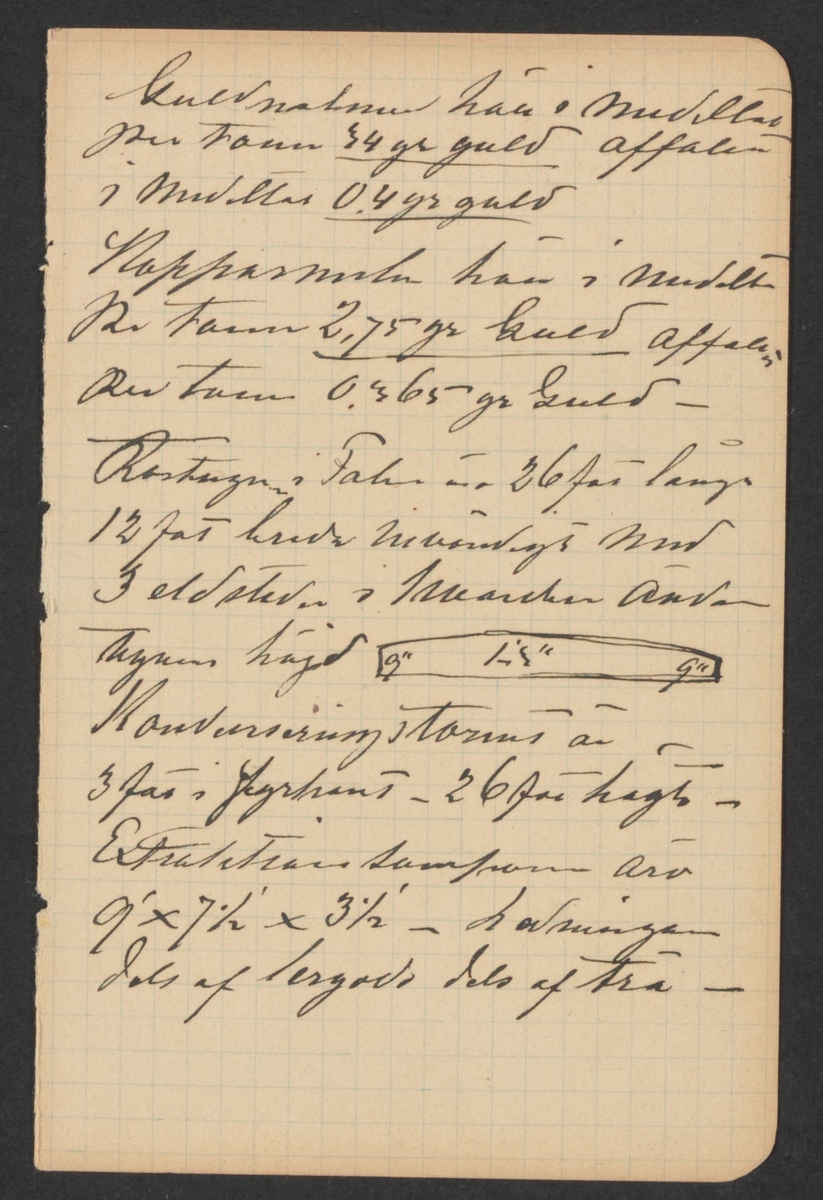 Guldmalmen hår i medeltal
per tonn 34 gr guld affallen
i medeltal 0.4 gr guld
Kopparmalm hår i medeltal
per tonn 2,75 gr Guld affallen
per tonn 0.365 gr Guld —
Rostugnen i Falun är 26 fot långa
12 fot breda invändigt med
3 eldstäder i hvardera ändan
ugnens höjd 9" 1.5" 9"
Kondenseringstornet är
3 fot i fyrkant — 26 fot högt —
Extraktions äro
9' x 7½' x 3½' — ledningar
dels af lergods dels af trä —